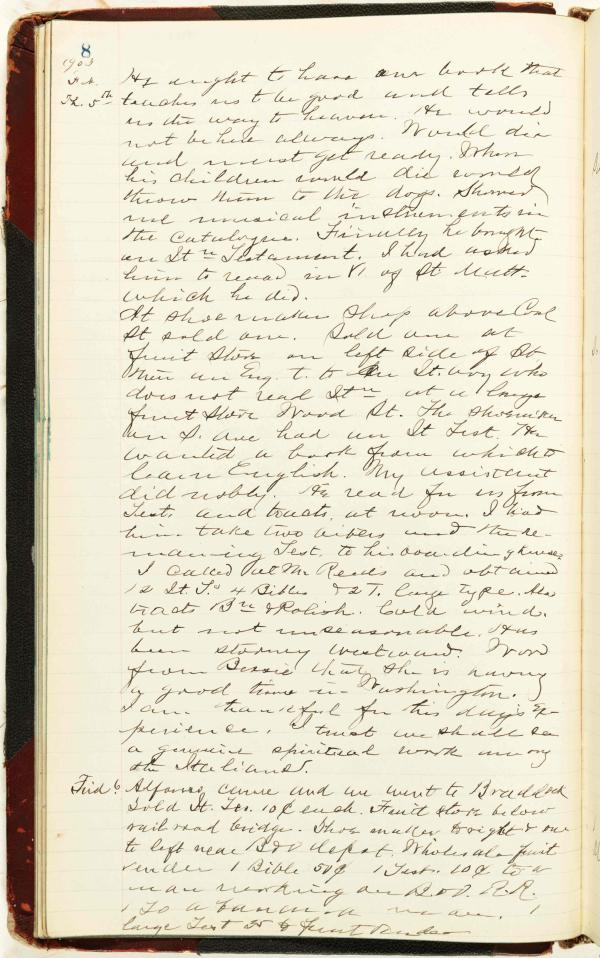 8
1903
Th. 5th
He ought to have our book that
teaches us to be good and tells
us the way to heaven. He would
not be here always. Would die
and must get ready. When
his children would die would
throw them to the dogs. Showed
me musical instruments in
the catalogue. Finally he bought
an Itn Testament. I had asked
him to read in VI of St Matt.
which he did.
At shoemaker shop above Coal
St sold one. Sold one at
fruit store on left side of St
then an Eng. t. to an It. boy who
does not read Itn at a large
fruit store Wood St. The shoemaker
on S. ave had an It Test. He
wanted a book from which to
learn English. My assistant
did nobly. He read for us from
Tests and tracts, at noon. I had
him take two bibles and the re-
maining Test. to his boarding house.
I called at Mr Reeds and obtained
12 It. Ts 4 Bibles & 2 T. large type. Also
tracts & Polish. Cold wind.
but not unseasonable. Has
been stormy westward. Word
from Bessie that she is having
a good time in Washington.
I am thankful for this day's ex-
perience. I trust we shall see
a genuine spiritual work among
the Italians.
Frid 6 Alfonso came and we went to Braddock
Sold It. Tes. 10¢ each. Fruit store below
rail road bridge. Shoe maker to right & one
to left near B&O depot. Wholesale fruit
vender 1 Bible 50¢ 1 Test. 10¢ to a
man working on B & O. R.R.
1 To a man. 1
large Test 25 fruit